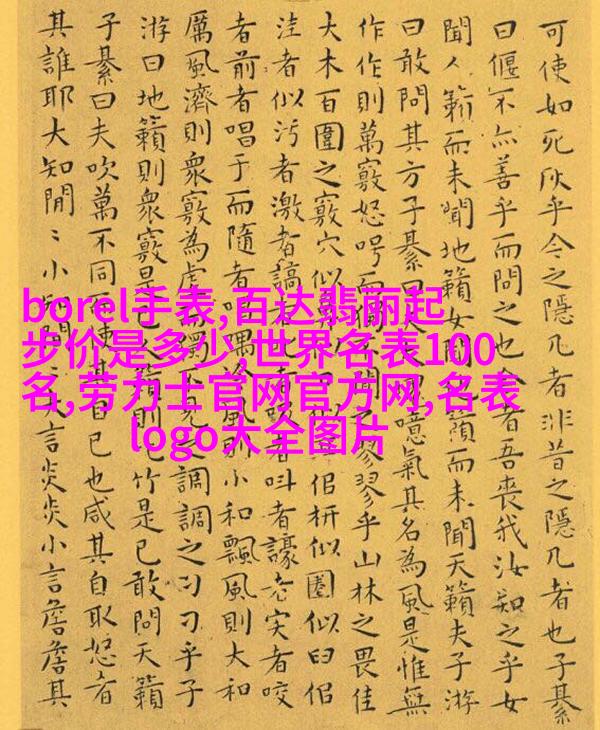 可使如死灰乎今之隱几者非昔之隱几者也子綦
曰偃不亦善乎而問之也今者吾喪我汝知之乎女
聞人籟而未聞地籟女聞地籟而未聞天籟夫子游
曰敢問其方子綦曰噫氣其名為風是惟無
作作則萬竅怒呺而聞之翏翏乎山林之畏佳
大木百圍之竅穴似鼻佀枅似圈似臼佀
洼者似污者激者謞者者叫者譹者宎者咬
者前者唱于而隨者唱喁風則小和飄風則大和
厲風濟則衆竅為虛調調之刁刁乎子
游曰地籟則衆竅是竹是已敢問天籟
子綦曰夫吹萬不同而使其自已也咸其自取怒者
其誰耶大知閒〻小知閒〻言炎炎小言詹詹其
borel手表,百达翡丽起
步价是多少,世界名表100
名,劳力士官网官方网,名表
logo大全图片